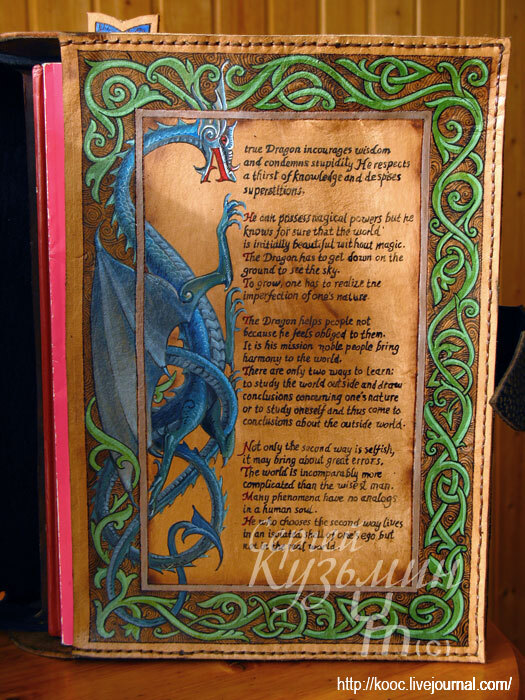 A true Dragon incourages wisdom
and condemns stupidity. He respects
a thirst of knowledge and despises
superstitions.
He can possess magical powers but he
knows for sure that the world
is initially beautiful without magic.
The Dragon has to get down on the
ground to see the sky.
To grow, one has to realize the
imperfection of one's nature.
The Dragon helps people not
because he feels obliged to them.
It is his mission noble people bring
harmony to the world.
There are only two ways to learn:
to study the world outside and draw
conclusions concerning one's nature
or to study oneself and thus come to
conclusions about the outside world.
Not only the second way is selfish,
it may bring about great errors,
The world is incomparably more
complicated than the wisest man.
Many phenomena have no analogs
in a human soul.
He who chooses the second way lives
in an isolated shell of one's ego but
not in the real world.
Кузьмин
(c)
http://kooc.livejournal.com/